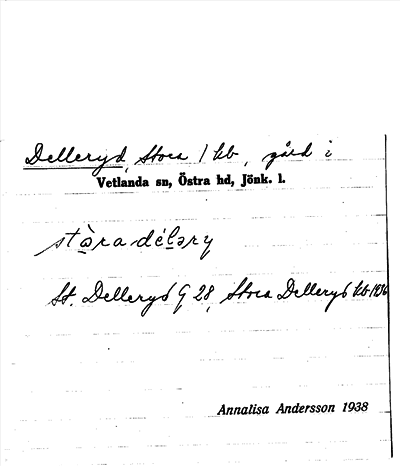 Delleryd, Stora 1 kb, gård i
Vetlanda sn, Östra hd, Jönk. l.
stòra délary
St. Delleryd G 28, Stora Delleryd kb 1936
Annalisa Andersson 1938